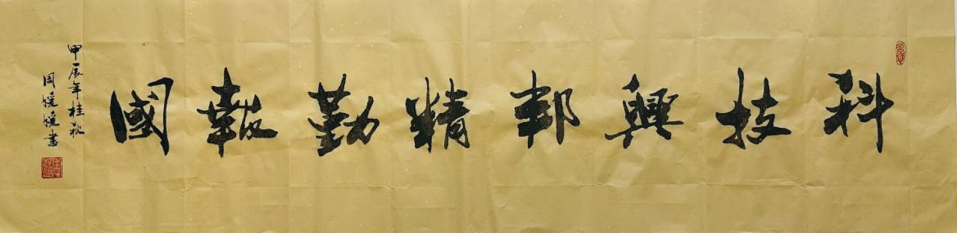 科技興邦精勤報國
甲辰年桂秋
周媛媛書